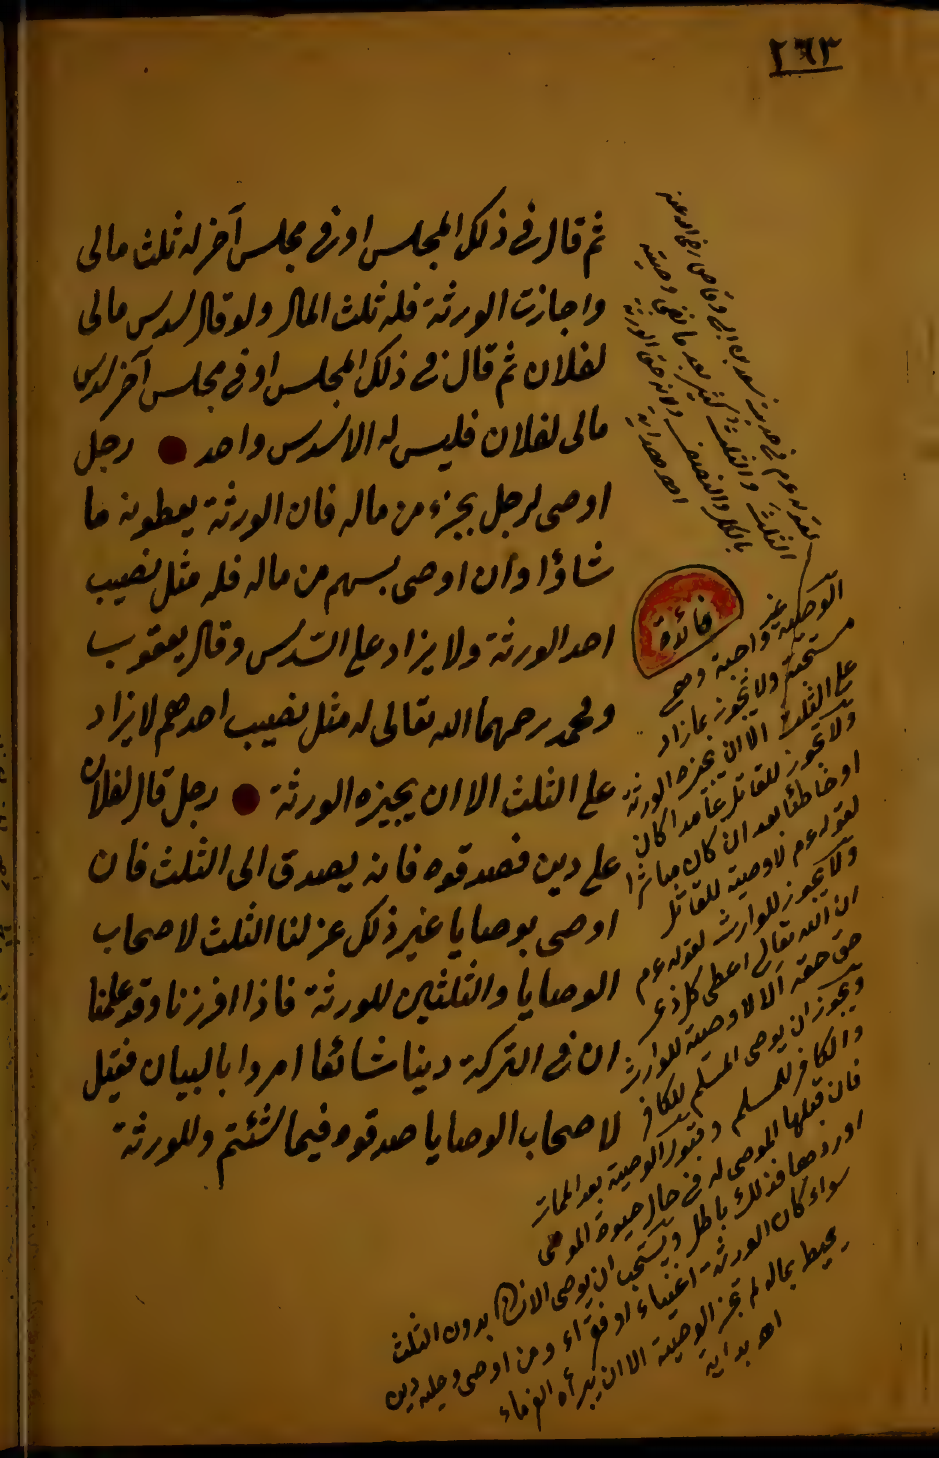 ٢٦٣
ثم قال في ذلك المجلس او في مجلس آخر له ثلث مالى
واجازت الورثة فله ثلث المال ولو قال سدس مالى
لفلان ثم قال في ذلك المجلس او في مجلس آخر سدس
مالى لفلان فليس له الا سدس واحد رجل
اوصى لرجل بجزء من ماله فان الورثة يعطونه ما
شاؤا وان اوصى بسهم من ماله فله مثل نصيب
احد الورثة ولا يزاد على السّدس وقال يعقوب
ومحمد رحمهما الله تعالى له مثل نصيب احدهم لا يزاد
على الثلث الا ان يجيزه الورثة رجل قال لفلان
على دين فصدقوه فانه يصدق الى الثلث فان
اوصى بوصايا غير ذلك عزلنا الثلث لاصحاب
الوصايا والثلثين للورثة فاذا افرزنا وقد علمنا
ان في التركة دينا شائعا امروا بالبيان فقيل
لاصحاب الوصايا صدقوه فيما شئتم وللورثة
لقوله عم في حديث سعد بن ابي وقاص رضى الله عنه
الثلث والثلث كثير بعد ما نفى وصيته
بالكل والنصف ولانه حق الورثة
اهـ هداية
فائدة
الوصية غير واجبة وهى
مستحبة ولا تجوز بما زاد
على الثلث الا ان يجيزه الورثة
ولا تجوز للقاتل عامدا كان
او خاطئا بعد ان كان مباشرا
لقوله عم لا وصية للقاتل
ولا تجوز للوارث لقوله عم
ان الله تعالى اعطى كل ذى
حق حقه ألا لا وصية للوارث
ويجوز ان يوصى المسلم للكافر
والكافر للمسلم وقبول الوصية بعد الممات
فان قبلها الموصى له في حال حيوة الموصى
او ردها فذلك باطل ويستحب ان يوصى الانسان بدون الثلث
سواء كان الورثة اغنياء او فقراء ومن اوصى وعليه دين
يحيط بماله لم تجز الوصية الا ان يبرأه الغرماء
اهـ بداية